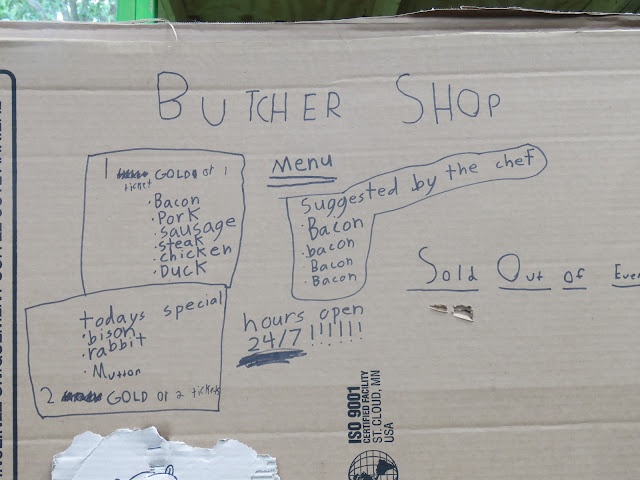 BUTCHER SHOP
1 GOLD or 1
ticket
• Bacon
• Pork
• sausage
• steak
• chicken
• DUCK
Menu
Suggested by the chef
• Bacon
• bacon
• Bacon
• Bacon
Sold Out of
todays special
• bison
• rabbit
• Mutton
2 GOLD or 2 ticket
hours open
24/7 !!!!!!
ISO 9001
CERTIFIED FACILITY
ST. CLOUD, MN
USA